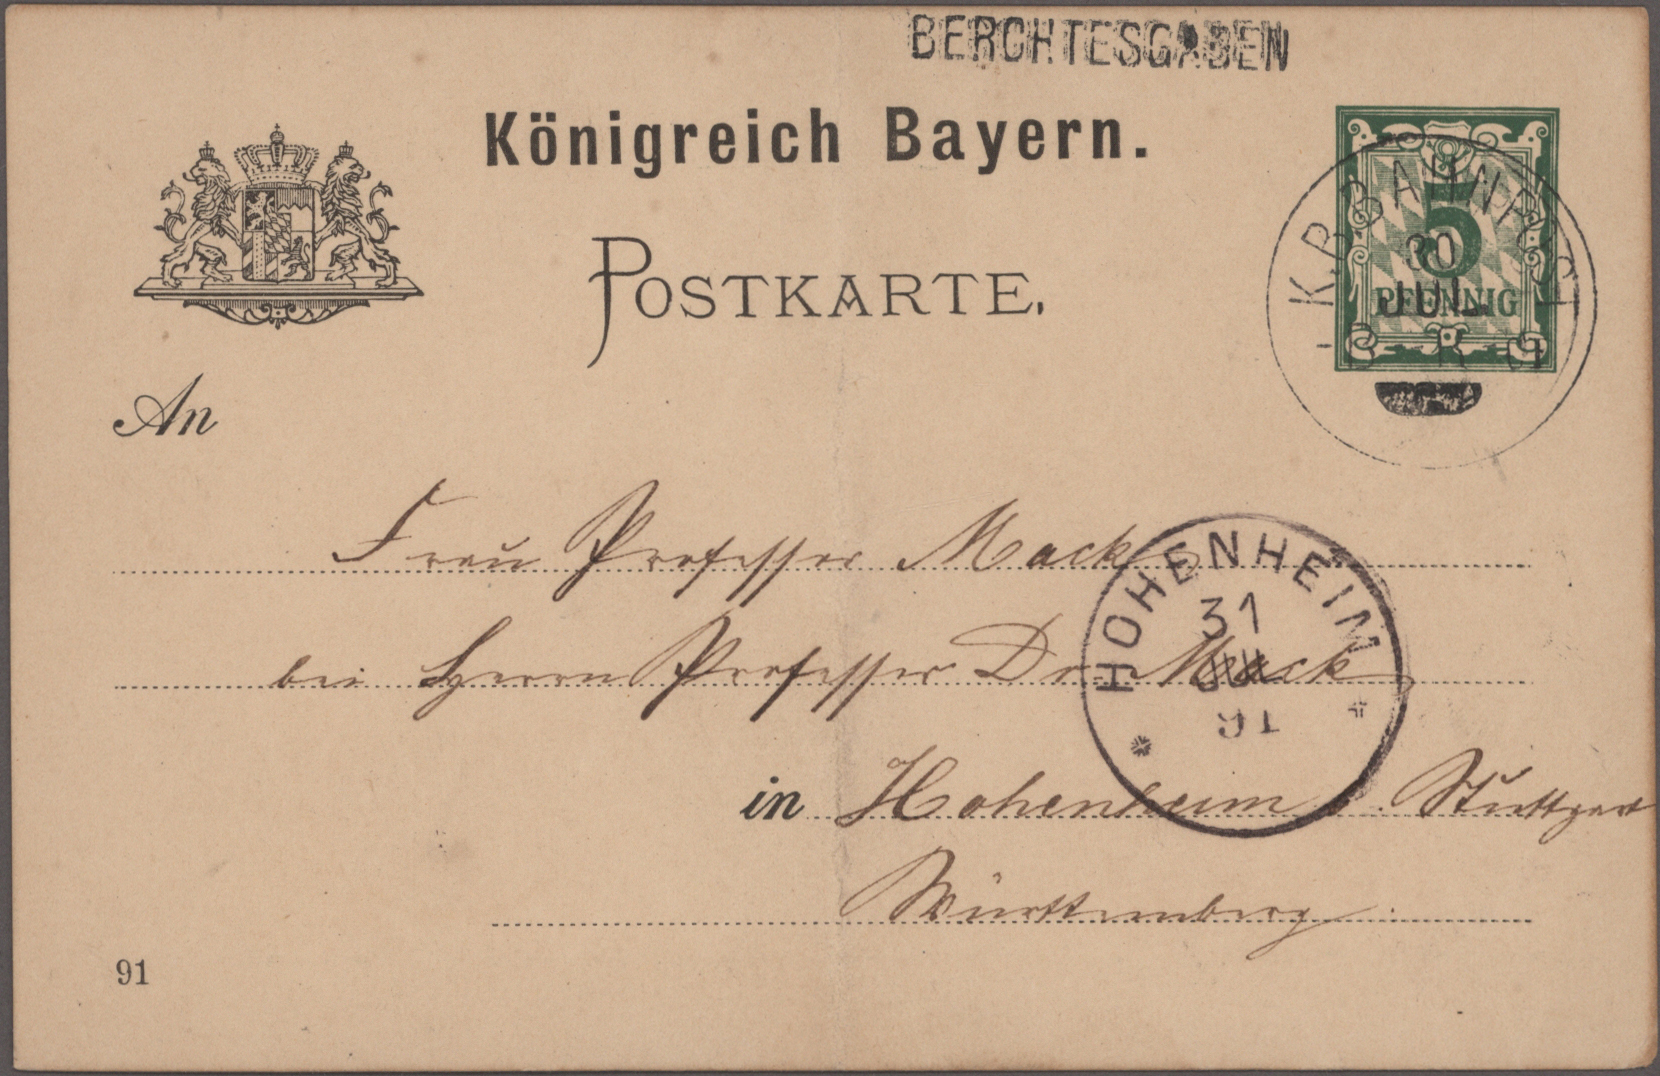 BERCHTESGADEN
Königreich Bayern.
POSTKARTE.
5
PFENNIG
K.B.BAHNPOST
30
JUL
An
Frau Professor Mack
bei Herrn Professor Dr. Mack
HOHENHEIM
31
JUL
91
in Hohenheim . Stuttgart
Württemberg.
91